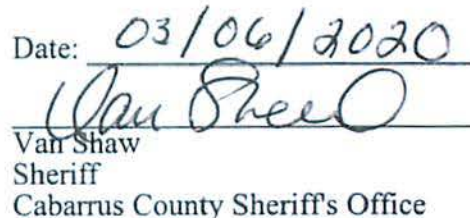 Date: 03/06/2020
Van Shaw
Van Shaw
Sheriff
Cabarrus County Sheriff's Office